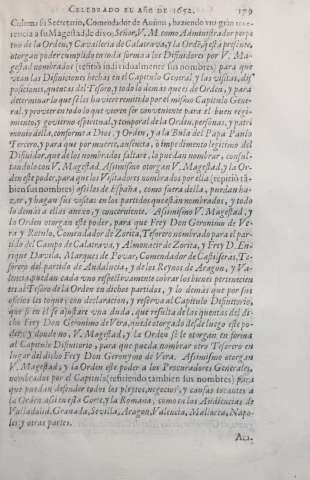 CELEBRADO EL AÑO DE 1652. 179
Coloma su Secretario, Comendador de Auñon, haziendo vna gran reue-
rencia a su Magestad, le dixo: Señor, V. M. como Administrador perpe
tuo de la Orden, y Caualleria de Calatraua, y la Orden, que esta presente,
otorgan poder cumplido en toda forma a los Difinidores por V. Ma-
gestad nombrados (repitió indiuidualmente sus nombres) para que
vean las Difiniciones hechas en el Capitulo General, y las visitas, dis-
posiciones, quentas del Tesoro, y todo lo demas que es de Orden, y para
determinar lo que se les huuiere remitido por el mismo Capitulo Gene-
ral, y proueer en todo lo que vieren ser conueniente para el buen regi-
miento, y gouierno espiritual, y temporal de la Orden, personas, y patri
monio della, conforme a Dios, y Orden, y a la Bula del Papa Paulo
Tercero, y para que por muerte, ausencia, ò impedimento legitimo del
Difinidor, que de los nombrados faltare, lo puedan nombrar, consul-
tandolo con V. Magestad. Assimismo otorgan V. Magestad, y la Or-
den este poder, para que los Visitadores nombrados por ella (repitiò tã-
bien sus nombres) assi los de España, como fuera della, puedan ha-
zer, y hagan sus visitas en los partidos que estàn nombrados, y todo
lo demàs a ellas anexo, y concerniente. Assimismo V. Magestad, y
la Orden otorgan este poder, para que Frey Don Geronimo de Ve-
ra y Rotulo, Comendador de Zorita, Tesorero nombrado para el par-
tido del Campo de Calatraua, y Almonacir de Zorita, y Frey D. En-
rique Dauila, Marques de Pouar, Comendador de Castilseras, Te-
sorero del partido de Andalucia, y de los Reynos de Aragon, y Va-
lencia, puedan cada vno respectiuamente cobrar los bienes pertenecien
tes al Tesoro de la Orden en dichos partidos, y lo demàs que por sus
oficios les toque; con declaracion, y reserua al Capitulo Difinitorio,
que si en èl se ajustare vna duda, que resulta de las quentas del di-
cho Frey Don Geronimo de Vera, quede otorgado desde luego este po-
der; y donde no, V. Magestad, y la Orden se le otorgan en forma
al Capitulo Difinitorio, para que pueda nombrar otro Tesorero en
lugar del dicho Frey Don Geronymo de Vera. Assimismo otorgan
V. Magestad, y la Orden este poder a los Procuradores Generales,
nombrados por el Capitulo (refiriendo tambien sus nombres) para
que puedan defender todos los pleytos, negocios, y causas tocantes a
la Orden assi en esta Corte, y la Romana, como en las Audiencias de
Valladolid, Granada, Seuilla, Aragon, Valencia, Mallorca, Napo-
les, y otras partes.
Aca-